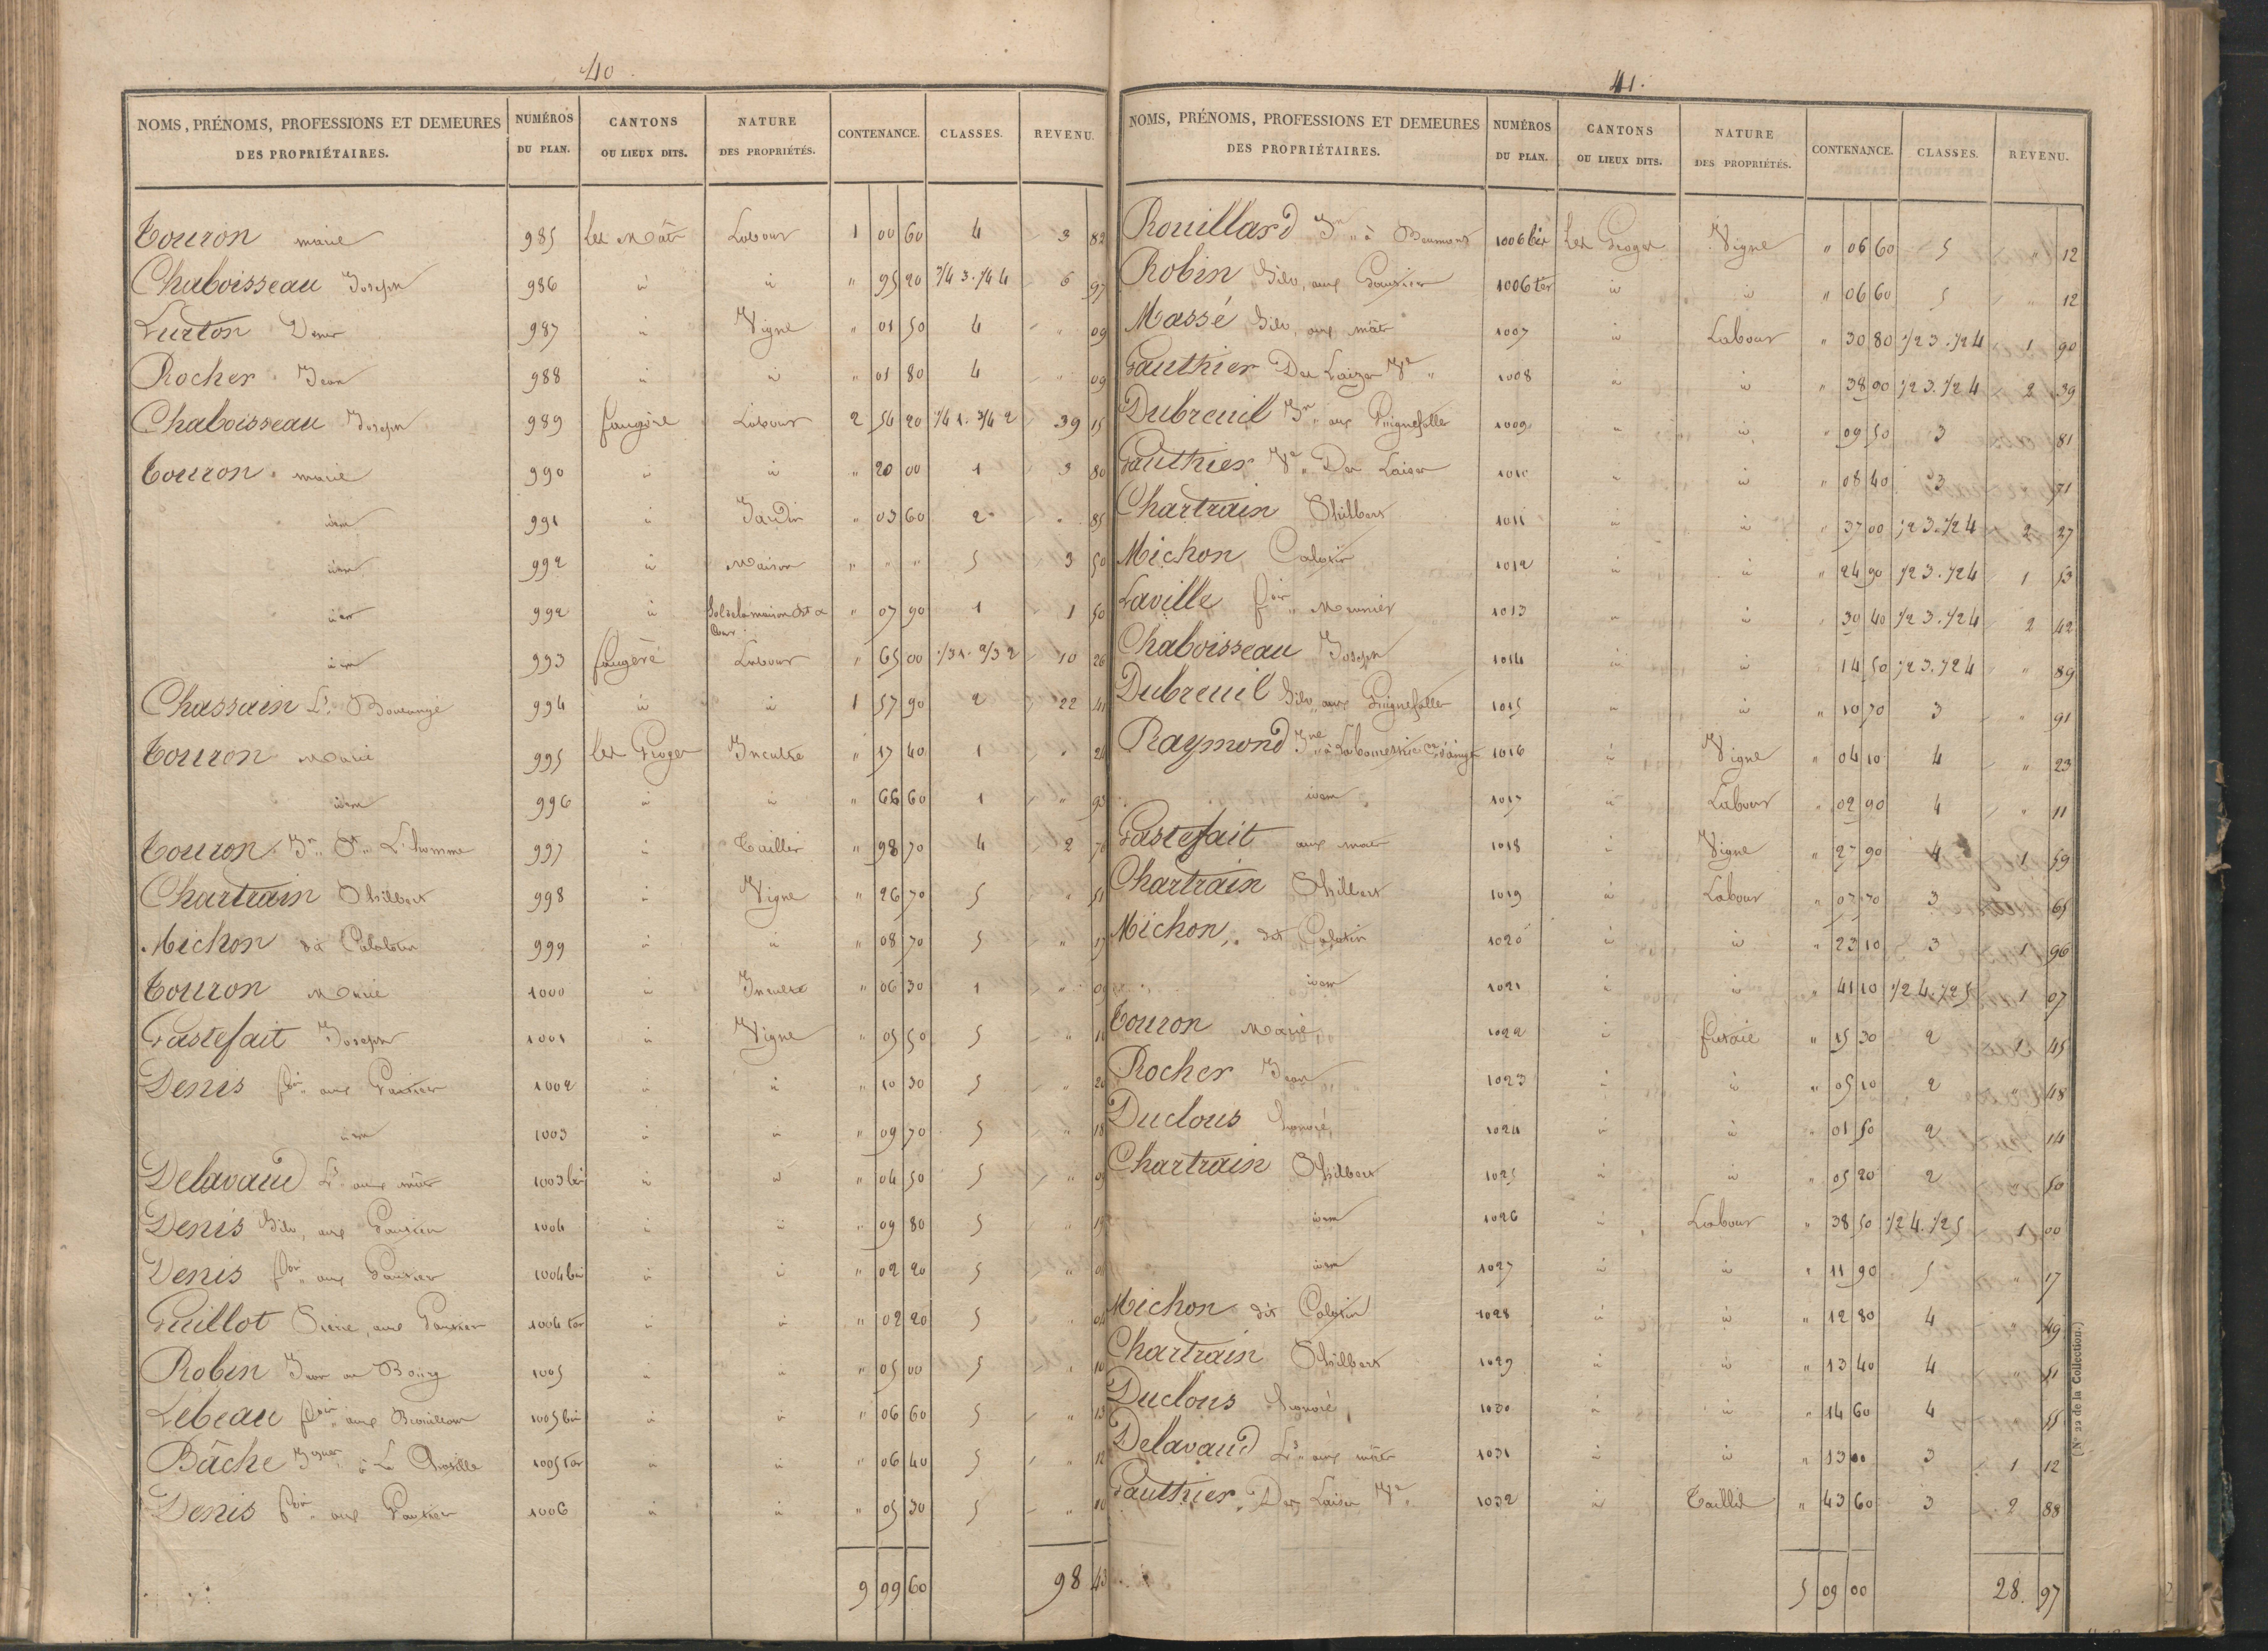 40
NOMS, PRÉNOMS, PROFESSIONS ET DEMEURES DES PROPRIÉTAIRES. NUMÉROS DU PLAN. CANTONS OU LIEUX DITS. NATURE DES PROPRIÉTÉS. CONTENANCE. CLASSES. REVENU.
Touron marie 985 Les Mâts Labour 1 00 60 4 3 82
Chaboisseau Joseph 986 id id " 95 20 3/4 3. 1/4 4 6 97
Lurton Denis 987 id Vigne " 01 50 4 " 09
Rocher Jean 988 id id " 01 80 4 " 09
Chaboisseau Joseph 989 faugère Labour 2 54 20 1/4 1. 3/4 2 39 15
Touron marie 990 id id " 20 00 1 3 80
idem 991 id Jardin " 03 60 2 " 85
idem 992 id Maison " " " 5 3 50
idem 992 id Sol de la maison Bt & Cour " 07 90 1 1 50
idem 993 faugère Labour " 65 00 1/3 1. 2/3 2 10 26
Chassain Ls. Boulanger 994 id id 1 57 90 2 22 41
Touron Marie 995 Les Proger Inculte " 17 40 1 " 24
idem 996 id id " 66 60 1 " 93
Touron Jn. St. L'homme 997 id Taillis " 98 70 4 2 76
Chartrain Philbert 998 id Vigne " 26 70 5 " 51
Michon dit Calotin 999 id id " 08 70 5 " 17
Touron Marie 1000 id Inculte " 06 30 1 " 09
Gastefait Joseph 1001 id Vigne " 05 50 5 " 10
Denis fois. aux Gautier 1002 id id " 10 30 5 " 20
idem 1003 id id " 09 70 5 " 18
Delavaud Ls. aux mâts 1003 bis id id " 04 50 5 " 09
Denis Silv. aux Gautier 1004 id id " 09 80 5 " 19
Denis fois. aux Gautier 1004 bis id id " 02 20 5 " 04
Guillot Pierre, aux Gautier 1004 ter id id " 02 20 5 " 04
Robin Jean au Bourg 1005 id id " 05 00 5 " 10
Lebeau fois. aux 1005 bis id id " 06 60 5 " 13
Bâche à La 1005 ter id id " 06 40 5 " 12
Denis fois. aux Gautier 1006 id id " 05 30 5 " 10
9 99 60 98 43
41.
NOMS, PRÉNOMS, PROFESSIONS ET DEMEURES DES PROPRIÉTAIRES. NUMÉROS DU PLAN. CANTONS OU LIEUX DITS. NATURE DES PROPRIÉTÉS. CONTENANCE. CLASSES. REVENU.
Rouillard Jn. à Beaumont 1006 bis Les Proger Vigne " 06 60 5 " 12
Robin Silv. aux Gautier 1006 ter id id " 06 60 5 " 12
Massé Silv. aux mâts 1007 id Labour " 30 80 1/2 3. 1/2 4 1 90
Gauthier Des Laizer Ve. 1008 id id " 38 90 1/2 3. 1/2 4 2 39
Dubreuil Jn. aux Guignefolles 1009 id id " 09 50 3 " 81
Gauthier Ve. Des Laizer 1010 id id " 08 40 3 " 71
Chartrain Philbert 1011 id id " 37 00 1/2 3. 1/2 4 2 27
Michon Calotin 1012 id id " 24 90 1/2 3. 1/2 4 1 53
Laville fois. Meunier 1013 id id " 39 40 1/2 3. 1/2 4 2 42
Chaboisseau Joseph 1014 id id " 14 50 1/2 3. 1/2 4 " 89
Dubreuil Silv. aux Guignefolles 1015 id id " 10 70 3 " 91
Raymond 1016 id Vigne " 04 10 4 " 23
idem 1017 id Labour " 02 90 4 " 11
Gastefait aux mâts 1018 id Vigne " 27 90 4 1 59
Chartrain Philbert 1019 id Labour " 07 70 3 " 65
Michon, dit Calotin 1020 id id " 23 10 3 1 96
idem 1021 id id " 41 10 1/2 4. 1/2 5 1 07
Touron Marie 1022 id futaie " 15 30 2 1 45
Rocher Jean 1023 id id " 05 10 2 " 48
Duclous honoré 1024 id id " 01 50 2 " 14
Chartrain Philbert 1025 id id " 05 20 2 " 50
idem 1026 id Labour " 38 50 1/2 4. 1/2 5 1 00
idem 1027 id id " 11 90 5 " 17
Michon dit Calotin 1028 id id " 12 80 4 " 49
Chartrain Philbert 1029 id id " 13 40 4 " 51
Duclous honoré 1030 id id " 14 60 4 " 55
Delavaud Ls. aux mâts 1031 id id " 13 00 3 1 12
Gauthier Des Laizer Ve. 1032 id Taillis " 43 60 3 2 88
5 09 00 28 97
(N° 22 de la Collection.)